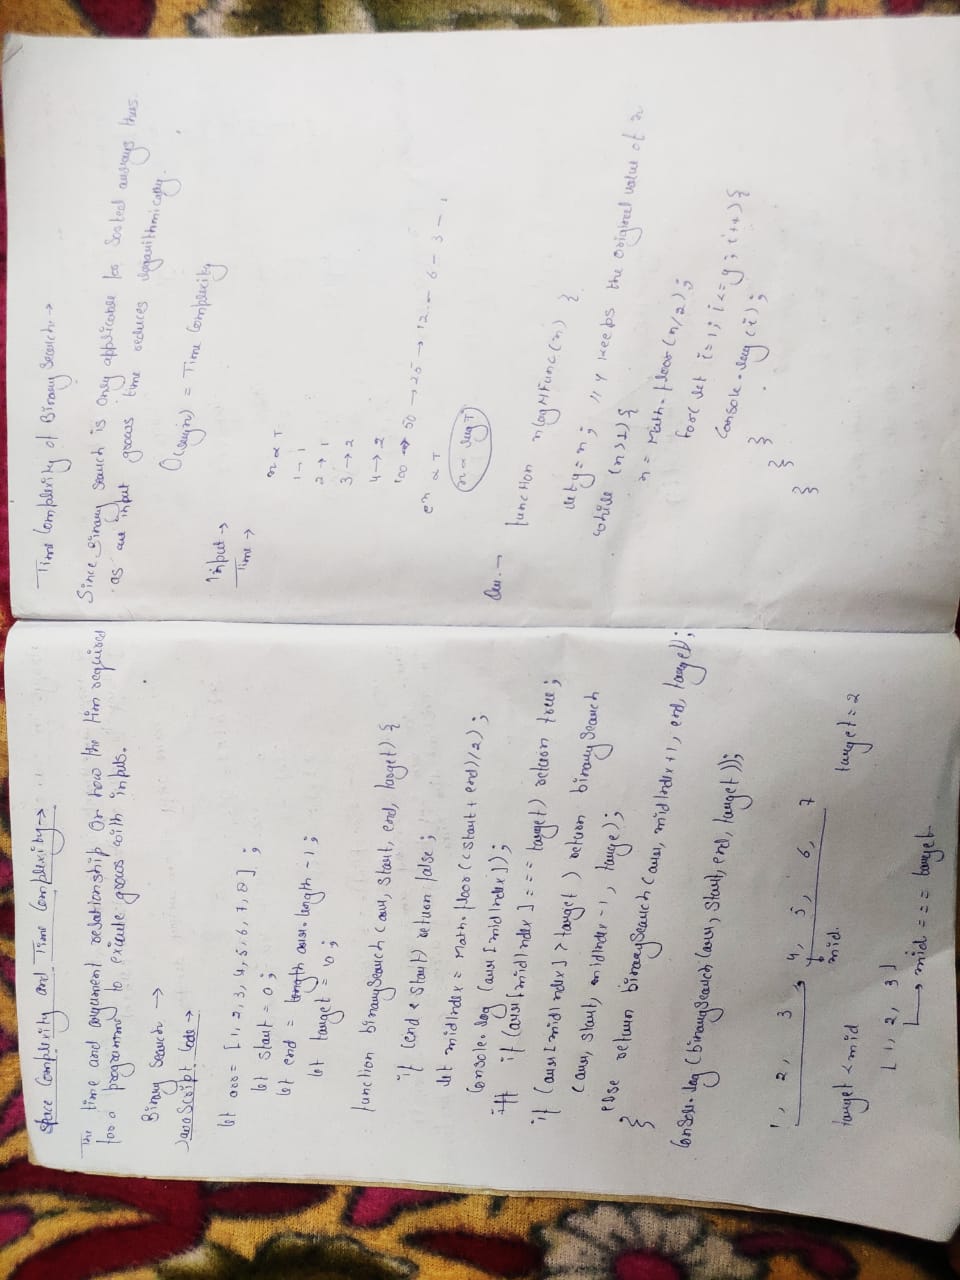 Space Complexity and Time Complexity →
The time and argument relationship or how the tim required
for a programme to exicute grows with inputs.
Binary Search →
JavaScript Code →
let arr = [1, 2, 3, 4, 5, 6, 7, 8] ;
let start = 0 ;
let end = arr.length - 1 ;
let target =
function binarySearch (arr, start, end, target) {
if (end < start) return false ;
let midIndex = Math.floor ((start + end)/2) ;
Console.log (arr [midIndex]) ;
if (arr[midIndex] === target) return true ;
if (arr[midIndex] > target) return binarySearch
(arr, start, midIndex-1, targe) ;
else return binarySearch (arr, midIndex+1, end, target) ;
}
Console.log (binarySearch (arr, start, end, target)) ;
1, 2, 3, 4, 5, 6, 7
mid.
target < mid target = 2
[1, 2, 3]
→ mid === target
Time Complexity of Binary Search →
Since Binary Search is only applicable for Sorted arrays thus
as are input grows time reduces logarithmically.
O(log(n)) = Time Complexity
Input →
Time →
n ∝ T
1 → 1
2 → 1
3 → 2
4 → 2
100 → 50 → 25 → 12 - 6 - 3 - 1
∝ T
n ∝ log T
Qu. → function nlogNFunc(n) {
let y = n ; // y keeps the original value of n
while (n>1) {
n = Math.floor (n/2) ;
for (let i=1; i<=y; i++) {
Console.log (i) ;
}
}
}